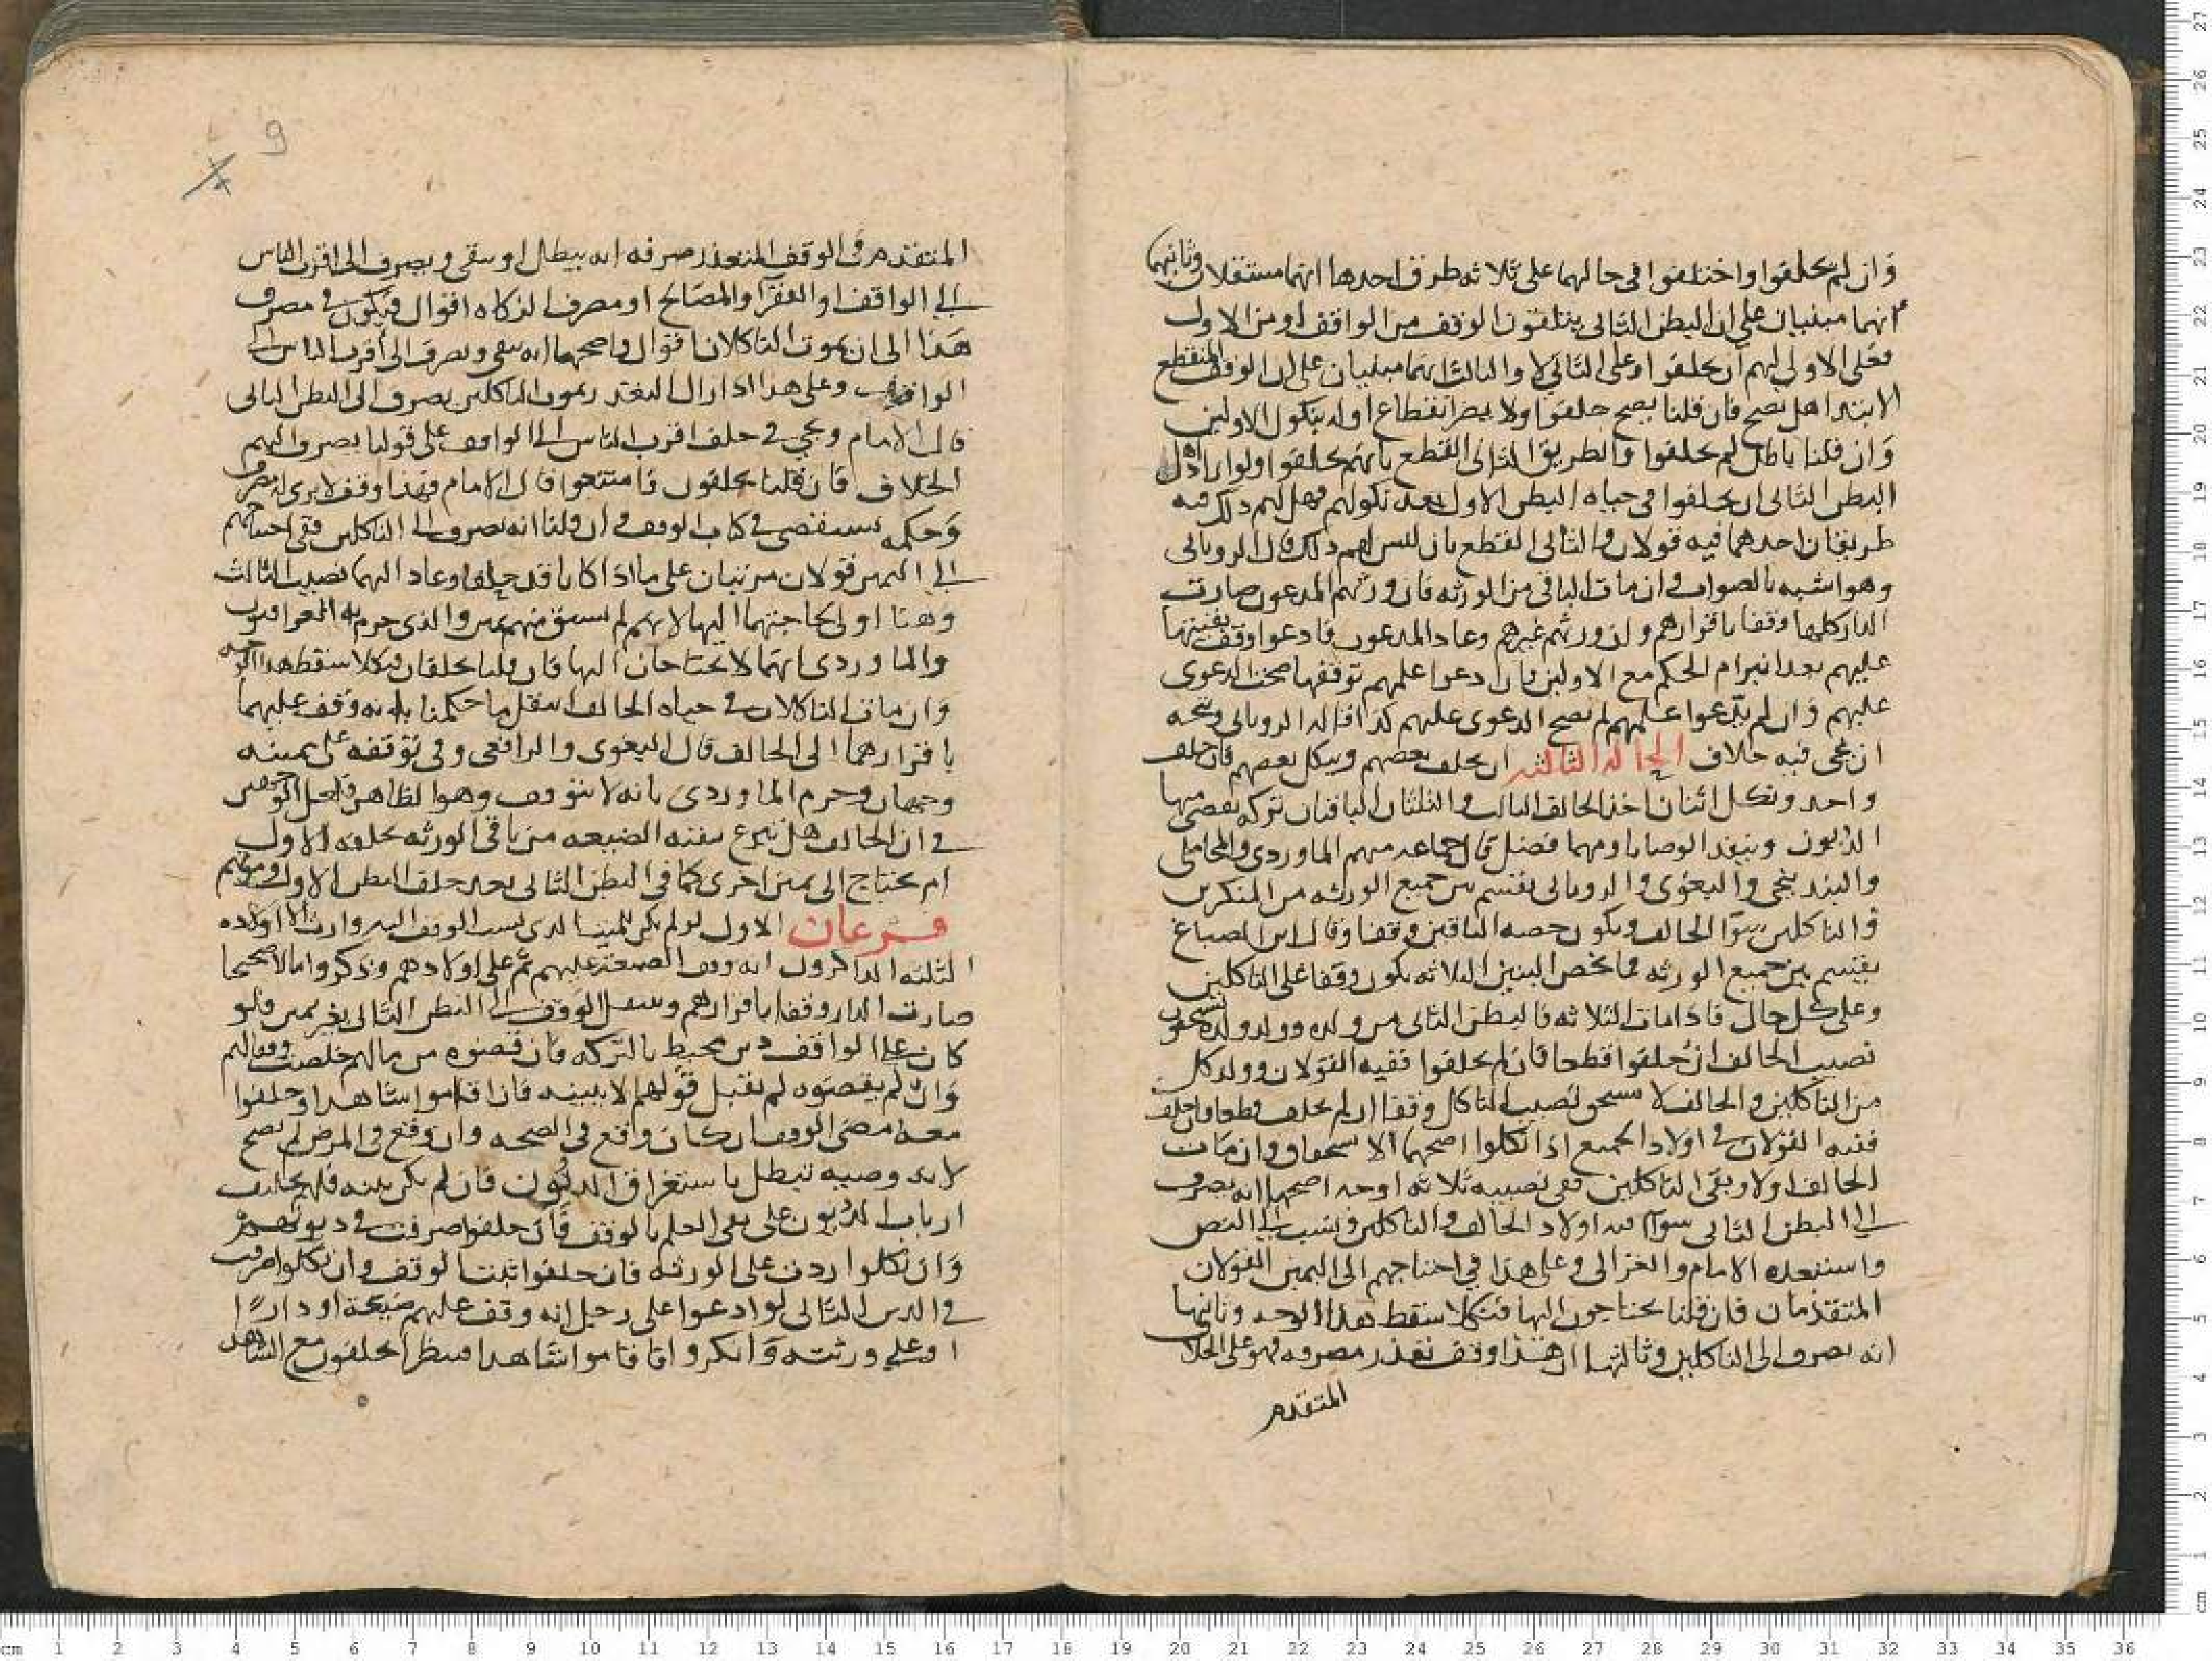 وان لم يحلفوا واختلفوا في حالهما على ثلاثه طرق احدها انهما مستقلان وثانيهما
انهما مبنيان على ان البطن الثاني يتلقون الوقف من الواقف او من الاول
فعلى الاول لهم ان يحلفوا وعلى الثاني لا والثالث انهما مبنيان على ان الوقف المنقطع
الابتدا هل يصح فان قلنا يصح حلفوا ولا يضر انقطاع اوله بنكول الاولين
وان قلنا باطل لم يحلفوا والطريق الثاني القطع بانهم يحلفوا ولو اراد
البطن الثاني ان يحلفوا في حياه البطن الاول بعد نكولهم فهل لهم ذلك فيه
طريقان احدهما فيه قولان والثاني القطع بان ليس لهم ذلك قال الروياني
وهو اشبه بالصواب وان مات الباقي من الورثه فان ورثهم المدعون صارت
الدار كلها وقفا باقرارهم وان ورثهم غيرهم وعاد المدعون فادعوا وقف بقيتها
عليهم بعد انبرام الحكم مع الاولين فان ادعوا علمهم توقفها صحت الدعوى
عليهم وان لم يدعوا علمهم لم تصح الدعوى عليهم كذا قاله الروياني ويتجه
ان يجي فيه خلاف الحاله الثالثه ان يحلف بعضهم وينكل بعضهم فان حلف
واحد ونكل اثنان اخذ الحالف الثلث والثلثان الباقيان تركه يقضي منها
الديون وينفذ الوصايا ومهما فضل قال جماعه منهم الماوردي والمحاملي
والبندنيجي والبغوي والروياني يقسم بين جميع الورثه من المنكرين
والناكلين سوا الحالف ويكون حصه الناقين وقفا وقال ابن الصباغ
يقسم بين جميع الورثه فما يخص البنين الثلاثه يكون وقفا على الناكلين
وعلى كل حال فاذا مات الثلاثه فالبطن الثاني من ولده وولد ولده يستحقون
نصيب الحالف ان حلفوا قطعا فان لم يحلفوا ففيه القولان وولد كل
من الناكلين والحالف لا يستحق نصيب الناكل وقفا ان لم يحلف قطعا وان حلف
ففيه القولان في اولاد الجميع اذا نكلوا اصحهما الاستحقاق وان مات
الحالف اولا وبقي الناكلين ففي نصيبه ثلاثه اوجه اصحها انه يصرف
الى البطن الثاني سوا فيه اولاد الحالف والناكلين ونسب الى النص
واستبعده الامام والغزالي وعلى هذا في احتياجهم الى اليمين القولان
المتقدمان فان قلنا يحتاجون اليها فنكلا سقط هذا الوجه وثانيها
انه يصرف الى الناكلين وثالثها ان هذا وقف تعذر مصرفه فهو على الخلاف
المتقدم
المتقدم في الوقف المتعذر صرفه انه يبطل او يبقى ويصرف الى اقرب الناس
الى الواقف او الفقرا والمصالح او مصرف الزكاه اقوال فيكون في مصرف
هذا الى ان يموت الناكلان اقوال واصحهما انه يبقى ويصرف الى اقرب الناس الى
الواقف وعلى هذا اذا زال التعذر بموت الناكلين يصرف الى البطن الثاني
قال الامام ويجي في حلف اقرب الناس الى الواقف على قولنا يصرف اليهم
الخلاف فان قلنا يحلفون فامتنعوا قال الامام فهذا وقف لا يرى له مصرف
وحكمه يستقصى في كتاب الوقف وان قلنا انه يصرف الى الناكلين ففي احتياجهم
الى اليمين قولان مرتبان على ما اذا كانا قد حلفا وعاد اليهما نصيب الثالث
وهنا اولى بحاجتهما اليها لانهم لم يسبق منهم يمين والذي جزم به العراقيون
والماوردي انهما لا يحتاجان اليها فان قلنا يحلفان فنكلا سقط هذا الوجه
وان مات الناكلان في حياه الحالف انتقل ما حكمنا بانه وقف عليهما
باقرارهما الى الحالف قال البغوي والرافعي وفي توقفه على يمينه
وجهان وجزم الماوردي بانه لا يتوقف وهو الظاهر واصل الوجهين
في ان الحالف هل ينزع بقيه الضيعه من باقي الورثه بحلفه الاول
ام يحتاج الى يمين اخرى كما في البطن الثاني بعد حلف البطن الاول وموتهم
فرعان الاول لو لم يكن للميت الذي نسب الوقف اليه وارث الا اولاده
الثلاثه الذاكرون انه وقف الضيعه عليهم ثم على اولادهم وذكروا مالا صحيحا
صارت الدار وقفا باقرارهم وينتقل الوقف الى البطن الثاني بغير يمين ولو
كان على الواقف دين محيط بالتركه فان قضوه من مالهم خلصت وقفا لهم
وان لم يقضوه لم يقبل قولهم الا ببينه فان اقاموا شاهدا وحلفوا
معه مضى الوقف ان كان واقع في الصحه وان وقع في المرض لم يصح
لانه وصيه تبطل باستغراق الديون فان لم يكن بينه فلهم تحليف
ارباب الديون على نفي العلم بالوقف فان حلفوا صرفت في ديونهم
وان نكلوا ردت على الورثه فان حلفوا ثبت الوقف وان نكلوا صرفت
في الدين الثاني لو ادعوا على رجل انه وقف عليهم ضيعة او دارا
او على ورثته وانكروا واقاموا شاهدا فينظر ايحلفون مع الشاهد